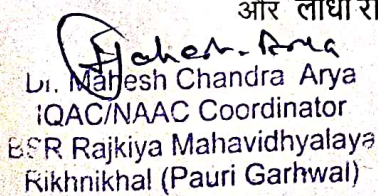 और लोधी रा
Mahesh Arya
Dr. Mahesh Chandra Arya
IQAC/NAAC Coordinator
BSR Rajkiya Mahavidhyalaya
Rikhnikhal (Pauri Garhwal)